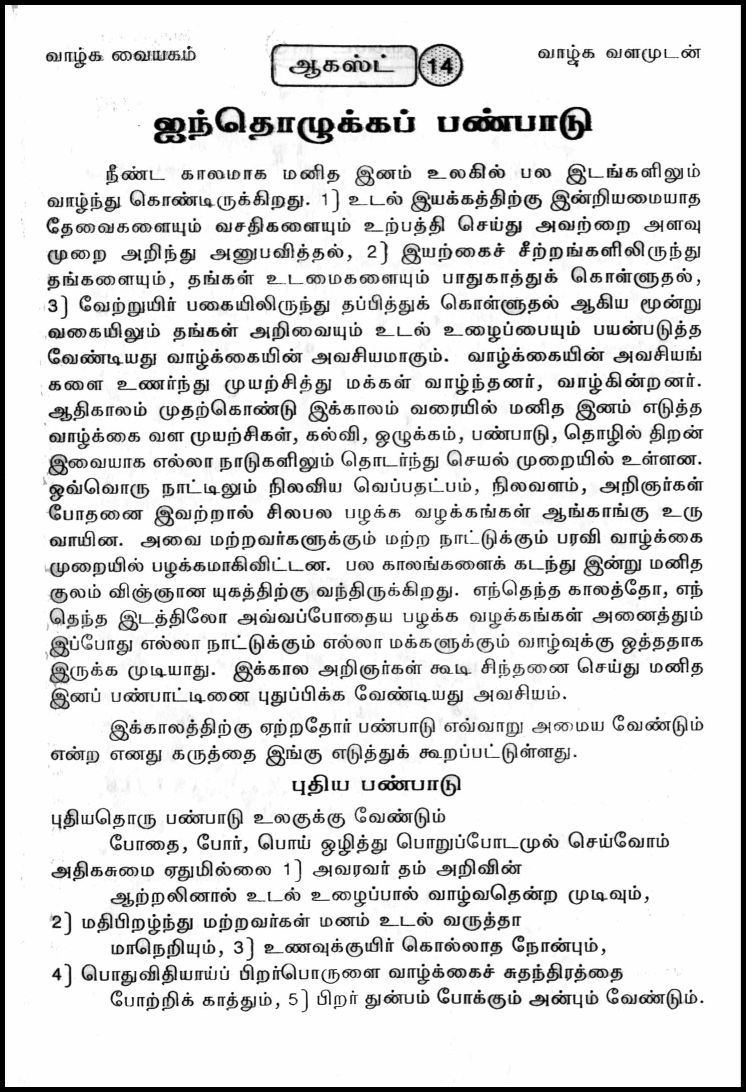 வாழ்க வையகம்
ஆகஸ்ட் 14
வாழ்க வளமுடன்
ஐந்தொழுக்கப் பண்பாடு
நீண்ட காலமாக மனித இனம் உலகில் பல இடங்களிலும்
வாழ்ந்து கொண்டிருக்கிறது. 1] உடல் இயக்கத்திற்கு இன்றியமையாத
தேவைகளையும் வசதிகளையும் உற்பத்தி செய்து அவற்றை அளவு
முறை அறிந்து அனுபவித்தல், 2] இயற்கைச் சீற்றங்களிலிருந்து
தங்களையும், தங்கள் உடமைகளையும் பாதுகாத்துக் கொள்ளுதல்,
3] வேற்றுயிர் பகையிலிருந்து தப்பித்துக் கொள்ளுதல் ஆகிய மூன்று
வகையிலும் தங்கள் அறிவையும் உடல் உழைப்பையும் பயன்படுத்த
வேண்டியது வாழ்க்கையின் அவசியமாகும். வாழ்க்கையின் அவசியங்
களை உணர்ந்து முயற்சித்து மக்கள் வாழ்ந்தனர், வாழ்கின்றனர்.
ஆதிகாலம் முதற்கொண்டு இக்காலம் வரையில் மனித இனம் எடுத்த
வாழ்க்கை வள முயற்சிகள், கல்வி, ஒழுக்கம், பண்பாடு, தொழில் திறன்
இவையாக எல்லா நாடுகளிலும் தொடர்ந்து செயல் முறையில் உள்ளன.
ஒவ்வொரு நாட்டிலும் நிலவிய வெப்பதட்பம், நிலவளம், அறிஞர்கள்
போதனை இவற்றால் சிலபல பழக்க வழக்கங்கள் ஆங்காங்கு உரு
வாயின. அவை மற்றவர்களுக்கும் மற்ற நாட்டுக்கும் பரவி வாழ்க்கை
முறையில் பழக்கமாகிவிட்டன. பல காலங்களைக் கடந்து இன்று மனித
குலம் விஞ்ஞான யுகத்திற்கு வந்திருக்கிறது. எந்தெந்த காலத்தோ, எந்
தெந்த இடத்திலோ அவ்வப்போதைய பழக்க வழக்கங்கள் அனைத்தும்
இப்போது எல்லா நாட்டுக்கும் எல்லா மக்களுக்கும் வாழ்வுக்கு ஒத்ததாக
இருக்க முடியாது. இக்கால அறிஞர்கள் கூடி சிந்தனை செய்து மனித
இனப் பண்பாட்டினை புதுப்பிக்க வேண்டியது அவசியம்.
இக்காலத்திற்கு ஏற்றதோர் பண்பாடு எவ்வாறு அமைய வேண்டும்
என்ற எனது கருத்தை இங்கு எடுத்துக் கூறப்பட்டுள்ளது.
புதிய பண்பாடு
புதியதொரு பண்பாடு உலகுக்கு வேண்டும்
போதை, போர், பொய் ஒழித்து பொறுப்போடமுல் செய்வோம்
அதிகசுமை ஏதுமில்லை 1] அவரவர் தம் அறிவின்
ஆற்றலினால் உடல் உழைப்பால் வாழ்வதென்ற முடிவும்,
2] மதிபிறழ்ந்து மற்றவர்கள் மனம் உடல் வருத்தா
மாநெறியும், 3] உணவுக்குயிர் கொல்லாத நோன்பும்,
4] பொதுவிதியாய்ப் பிறர்பொருளை வாழ்க்கைச் சுதந்திரத்தை
போற்றிக் காத்தும், 5] பிறர் துன்பம் போக்கும் அன்பும் வேண்டும்.